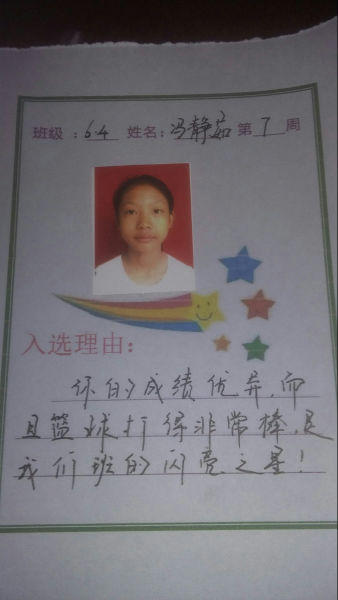 班级：6.4 姓名：冯静茹 第7周
入选理由：
你的成绩优异，而
且篮球打得非常棒，是
我们班的闪亮之星！